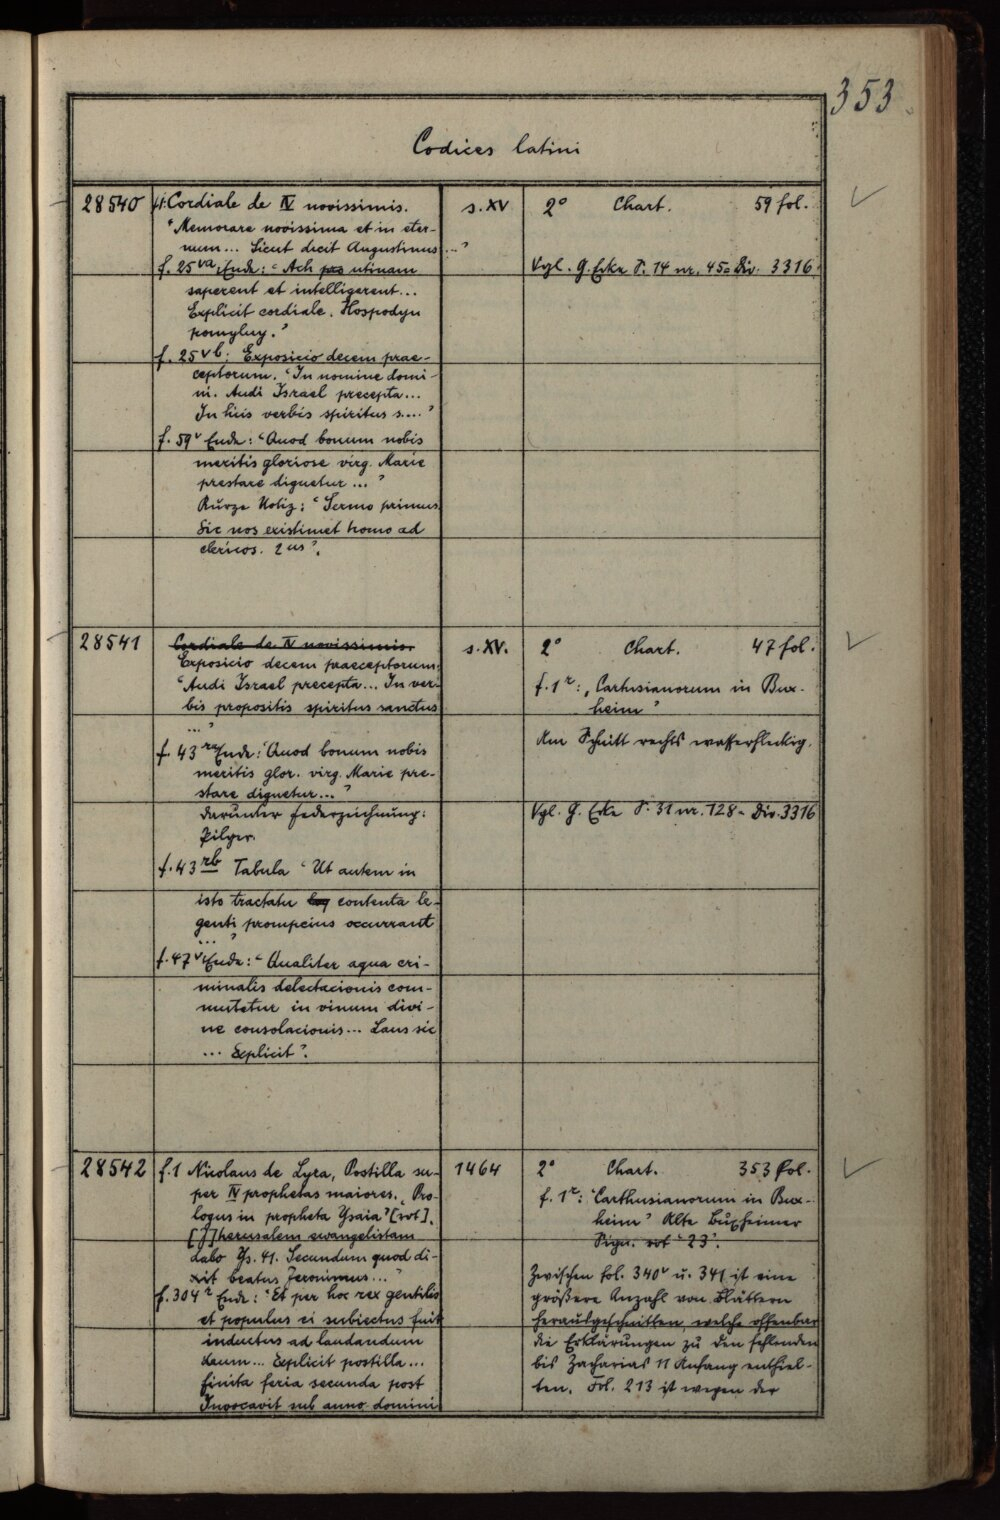 353
Codices latini
28540
f.1: Cordiale de IV novissimis.
"Memorare novissima et in eter-
num... Sicut dicit Augustinus ..."
f. 25va Ende: "Ach pro utinam
saperent et intelligerent...
Explicit cordiale. Hospodyn
pomyluy."
f. 25vb: Exposicio decem prae-
ceptorum. "In nomine domi-
ni. Audi Israel precepta...
In hiis verbis spiritus s...."
f. 59v Ende: "Quod bonum nobis
meritis gloriose virg. Marie
prestare dignetur ..."
Kurze Notiz: "Sermo primus
Sic nos existimet homo ad
clericos. 1us".
s. XV
2° Chart. 59 fol.
Vgl. G. S. 14 nr. 45 = Div. 3316.
28541
Cordiale de IV novissimis.
Exposicio decem praeceptorum:
"Audi Israel precepta... In ver-
bis propositis spiritus sanctus
..."
f. 43ra Ende: "Quod bonum nobis
meritis glor. virg. Marie pre-
stare dignetur..."
darunter Federzeichnung:
Pilger.
f. 43rb Tabula "Ut autem in
isto tractatu contenta le-
genti prompcius occurrant
..."
f. 47v Ende: "Qualiter aqua cri-
minalis delectacionis com-
mutetur in vinum divi-
ne consolacionis... Laus sit
... Explicit".
s. XV.
2° Chart. 47 fol.
f. 1r: "Cartusianorum in Bux-
heim"
Am Schnitt rechts wasserfleckig.
Vgl. G. S. 31 nr. 128 = Div. 3316
28542
f.1 Nicolaus de Lyra, Postilla su-
per IV prophetas maiores. "Pro-
logus in propheta Ysaia" [rot].
[J]herusalem ewangelistam
dabo Ys. 41. Secundum quod di-
xit beatus Jeronimus..."
f. 304r Ende: "Et per hoc rex gentilis
et populus ei subiectus fuit
inductus ad laudandum
deum... Explicit postilla...
finita feria secunda post
Invocavit sub anno domini
1464
2° Chart. 353 fol.
f. 1r: "Carthusianorum in Bux-
heim" Alte Buxheimer
Sign. rot "23".
Zwischen fol. 340v u. 341 ist eine
größere Anzahl von Blättern
herausgeschnitten, welche offenbar
die Erklärungen zu den fehlenden
bis Zacharias 11 Anfang enthiel-
ten. Fol. 213 ist wegen der